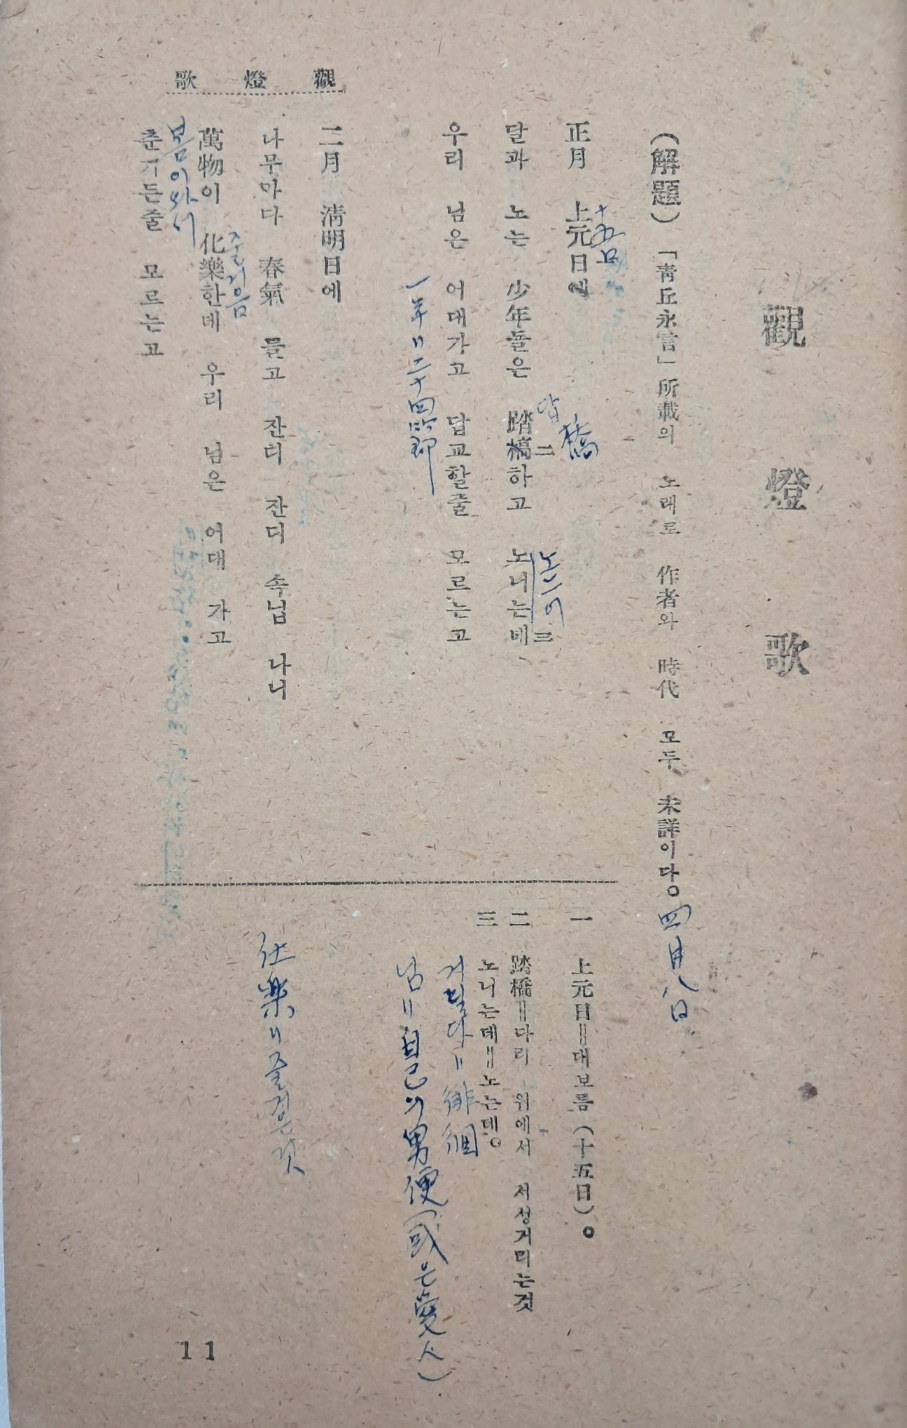 觀燈歌
(解題) 「靑丘永言」所載의 노래로 作者와 時代 모두 未詳이다。
四月八日
正月 上元日에
달과 노는 少年들은 踏橋하고 노니는데
답 橋 二
노는이 三
우리 님은 어대가고 답교할줄 모르는고
一年〃二十四節
二月 淸明日에
나무마다 春氣 들고 잔디 잔디 속닙 나니
萬物이 化樂한데 우리 님은 어대 가고
즐거음
봄이와서
춘기든줄 모르는고
一 上元日=대보름(十五日)。
二 踏橋=다리 위에서 서성거리는것
三 노니는데=노는데。
거닐다〃徘徊
님〃自己의 男便(或은 愛人)
化樂〃즐겁은것
觀燈歌
11